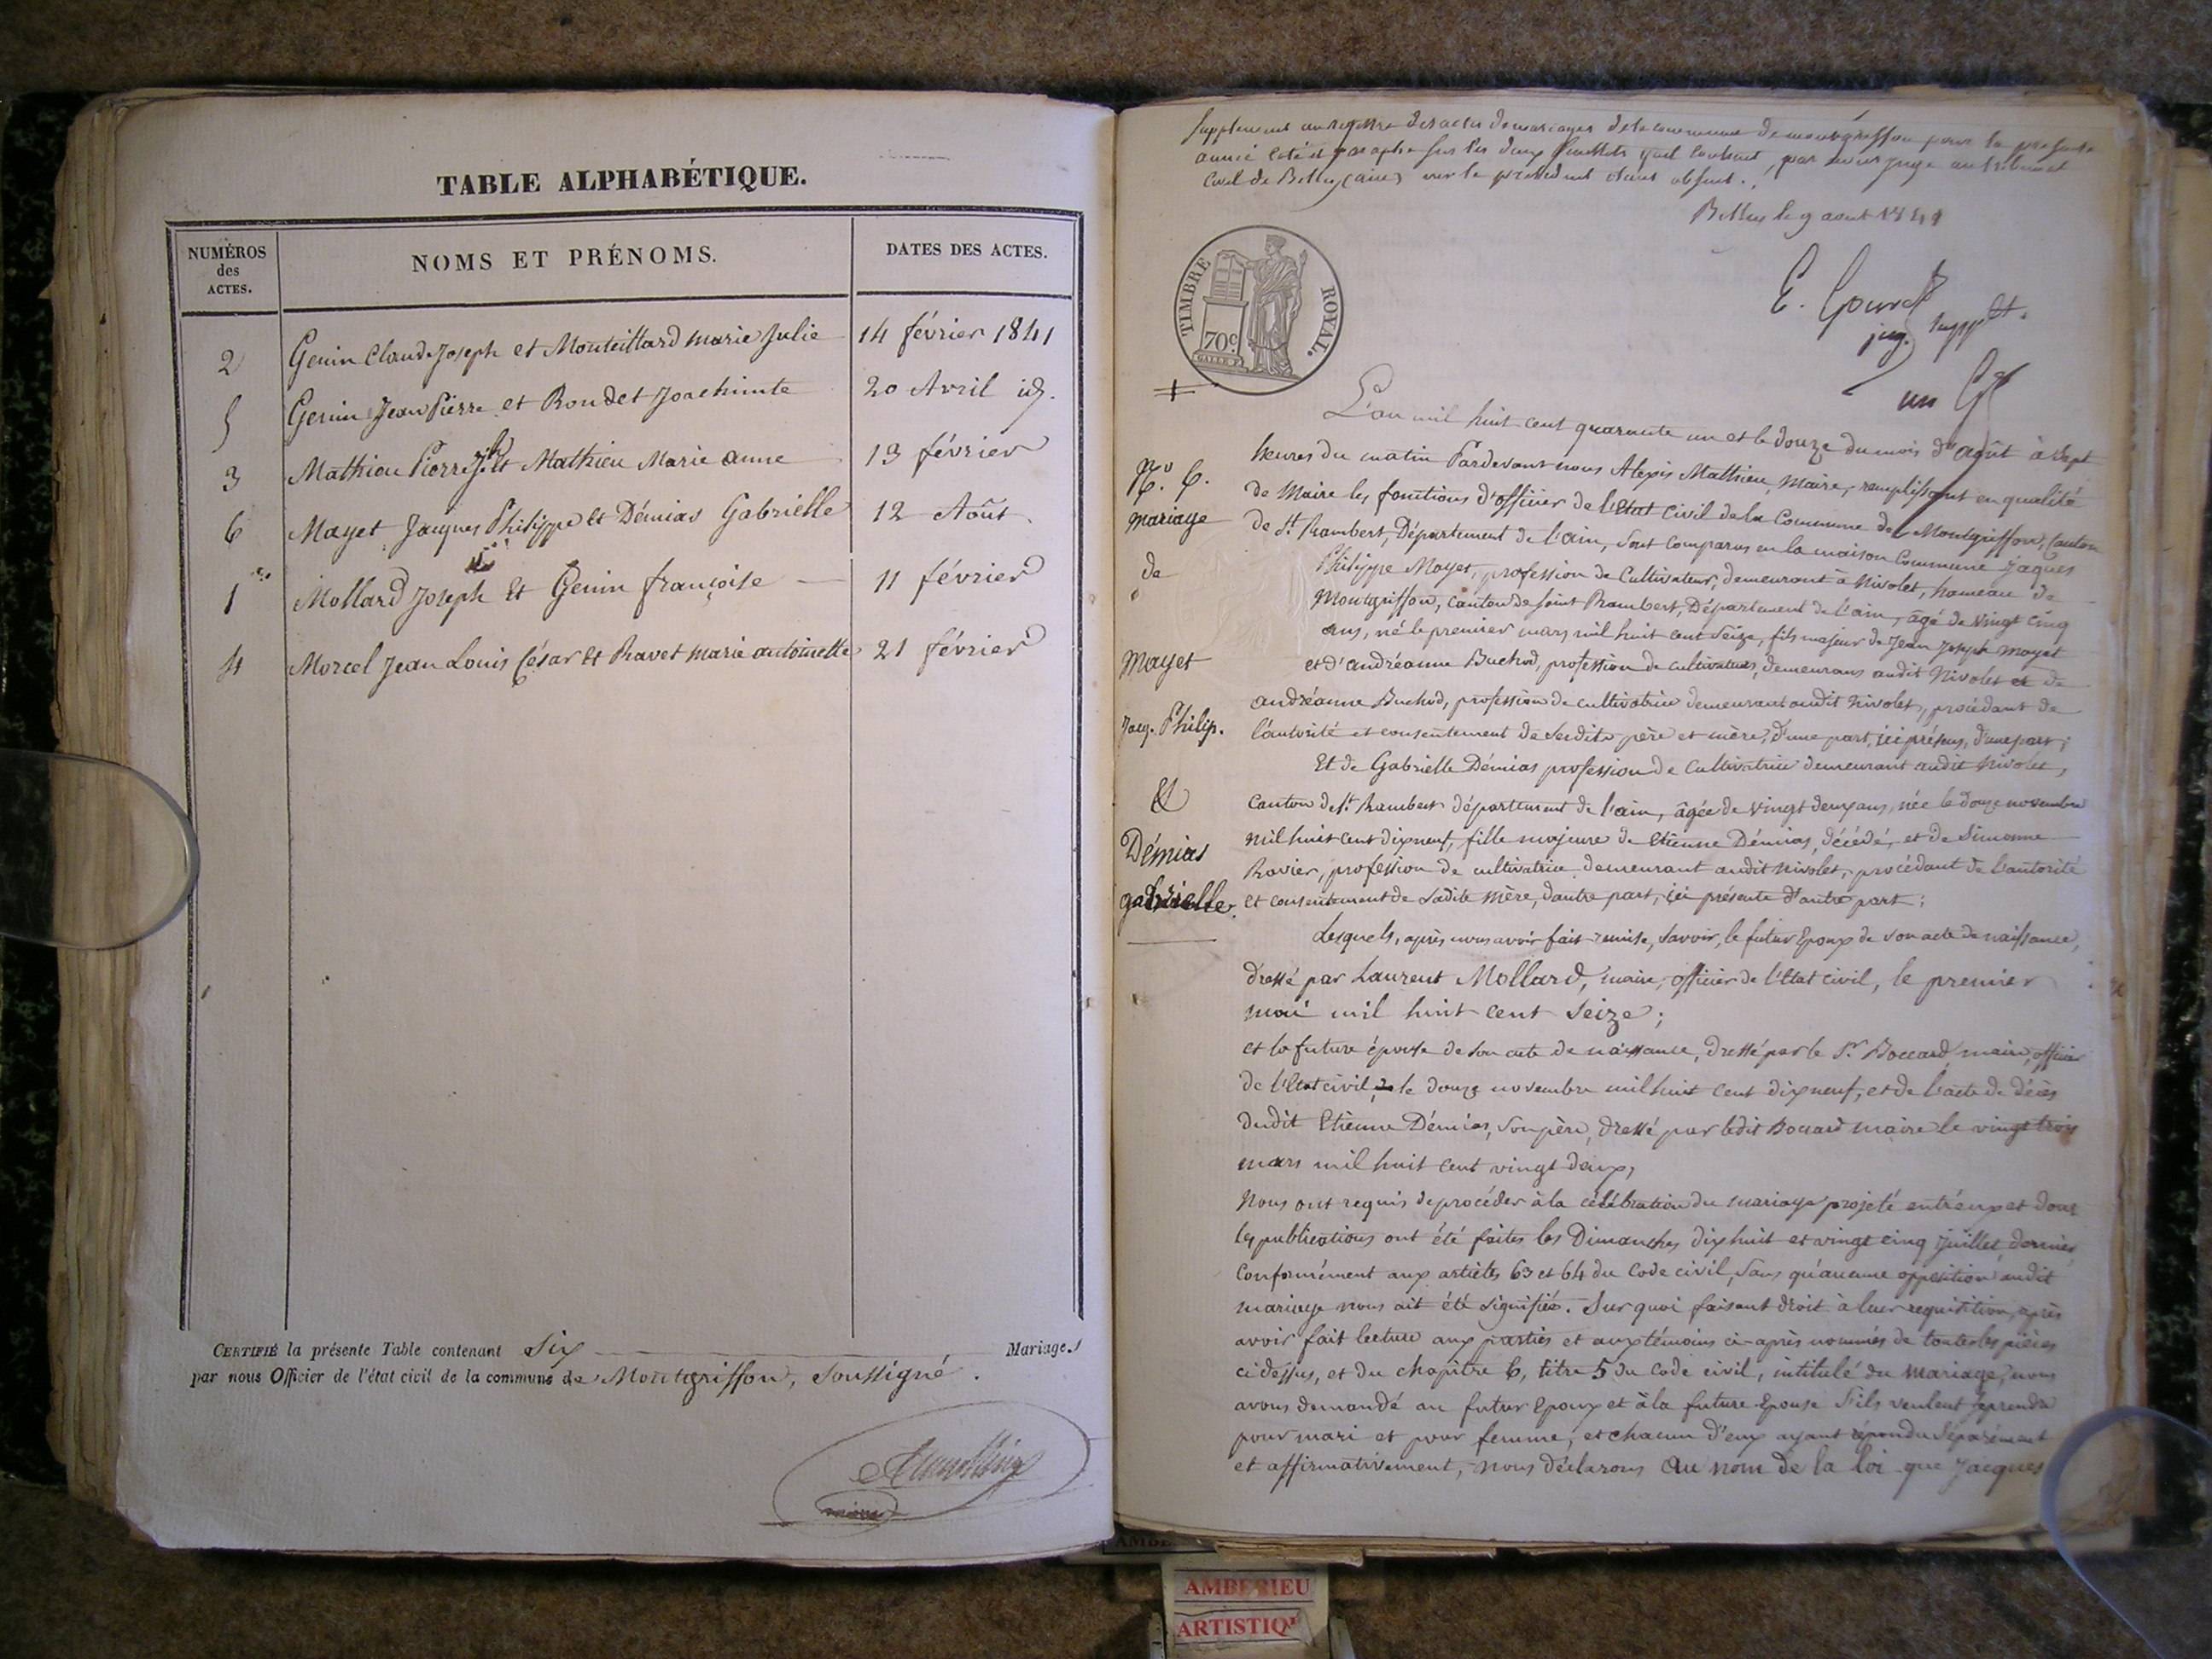 TABLE ALPHABÉTIQUE.
NUMÉROS des ACTES. NOMS ET PRÉNOMS. DATES DES ACTES.
2 Genin Claude Joseph et Monteillard marie Julie 14 février 1841
5 Genin Jean Pierre et Roudet Joachimte 20 Avril id.
3 Mathieu Pierre et Mathieu Marie anne 13 février
6 Mayet Jacques Philippe et Démias Gabrielle 12 Août
1er Mollard Joseph et Genin françoise 11 février
4 Morcel Jean Louis César et Ravet marie antoinette 21 février
CERTIFIÉ la présente Table contenant Six Mariages
par nous Officier de l'état civil de la commune de Montgriffon, Soussigné.
maire
Supplement au registre des actes de mariages de la commune de montgriffon pour la presente
année coté et paraphé sur les deux feuillets quil contient, par nous juge au tribunal
Civil de Belley (ain) vu le président étant absent.
Belley le 9 aout 1841
E. Gourd
jug. supplét.
un
TIMBRE ROYAL.
70c.
L'an mil huit cent quarante un et le douze du mois d'août à Sept
heures du matin Pardevant nous Alexis Mathieu, Maire, remplissant en qualité
de Maire les fonctions d'officier de l'Etat civil de la Commune de Montgriffon, Canton
de St. Rambert, Département de l'ain, Sont comparus en la maison Commune Jaques
Philippe Mayet, profession de Cultivateur, demeurant à Nivolet, hameau de
Montgriffon, Canton de saint Rambert, Département de l'ain, âgé de vingt cinq
ans, né le premier mars mil huit cent Seize, fils majeur de Jean Joseph mayet
et d'andréanne Buchod, profession de cultivateurs, demeurans audit Nivolet et de
andréanne Buchod, profession de cultivatrice demeurant audit nivolet, procédant de
l'autorité et consentement de sesdits père et mère, d'une part, ici présens, d'une part;
Et de Gabrielle Démias profession de Cultivatrice demeurant audit Nivolet,
Canton de St. Rambert département de l'ain, âgée de vingt deux ans, née le douze novembre
mil huit cent dixneuf, fille majeure de Etienne Démias, décédé, et de Simonne
Ravier, profession de cultivatrice demeurant audit nivolet, procédant de l'autorité
et consentement de sadite mère, dautre part, ici présente d'autre part;
Lesquels, après nous avoir fait remise, Savoir, le futur Epoux de son acte de naissance,
dressé par Laurent Mollard, maire, officier de l'Etat civil, le premier
mai mil huit cent Seize;
et la future épouse de son acte de naissance, dressé par le Sr. Bouard maire, officier
de l'Etat civil, le douze novembre mil huit cent dixneuf, et de l'acte de décès
dudit Etienne Démias, son père, dressé par ledit Bouard maire le vingt trois
mars mil huit cent vingt deux,
Nous ont requis de procéder à la célébration du mariage projeté entr'eux et dont
les publications ont été faites les Dimanches dixhuit et vingt cinq Juillet dernier,
Conformément aux articles 63 et 64 du Code civil, Sans qu'aucune opposition audit
mariage nous ait été signifiée. Sur quoi faisant droit à leur requisition, après
avoir fait lecture aux parties et aux témoins ci-après nommés de toutes les pièces
ci dessus, et du chapitre 6, titre 5 du Code civil, intitulé du Mariage, nous
avons demandé au futur Epoux et à la future Epouse S'ils veulent se prendre
pour mari et pour femme, et chacun d'eux ayant répondu Séparément
et affirmativement, nous déclarons au nom de la loi que Jacques
No. 6.
mariage
de
Mayet
Jacq. Philip.
et
Démias
gabrielle.
AMBERIEU
ARTISTIQ